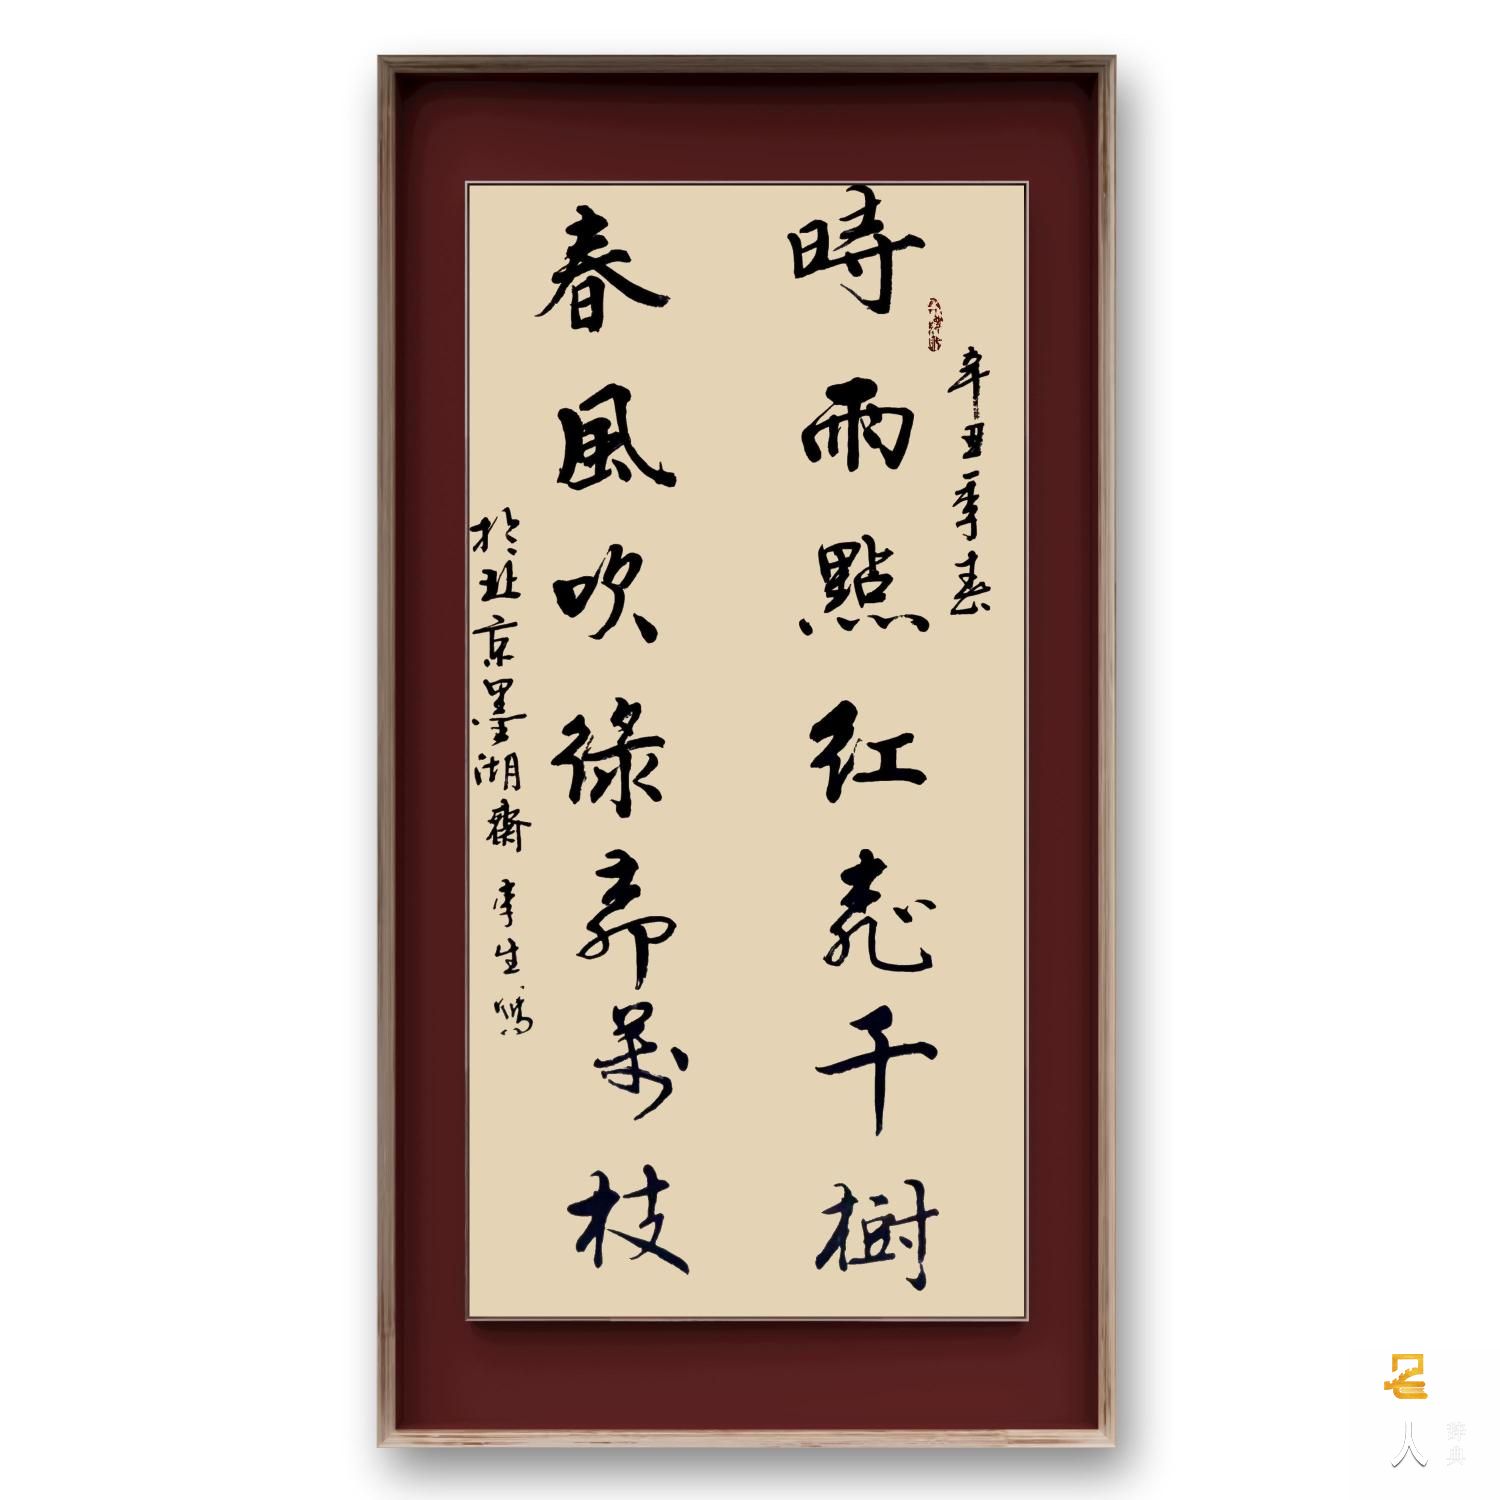 辛丑季春
時雨點紅桃千樹
春風吹綠柳萬枝
於北京墨湖齋 李生
人
辞典